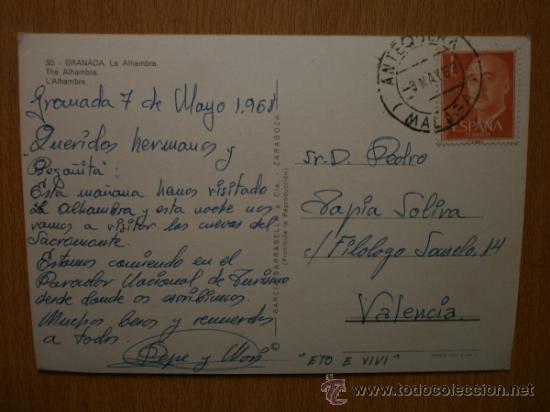 50. - GRANADA. La Alhambra.
The Alhambra.
L'Alhambra.
Granada 7 de Mayo 1.968
Queridos hermanos y
Begoñita:
Esta mañana hemos visitado
La Alhambra y esta noche nos
vamos a visitar las cuevas del
Sacromonte.
Estamos comiendo en el
Parador Nacional de Turismo
desde donde os escribimos.
Muchos besos y recuerdos
a todos.
Pepe y
GARCIA GARRABELLA & Cía. - ZARAGOZA
(Prohibida la Reproducción)
ANTEQUERA
(MALAGA)
ESPAÑA
CORREOS
Sr. D. Pedro
Tapia Soliva
c/ Filologo Sanelo, 14
Valencia.
"ETO E VIVI"
todocoleccion